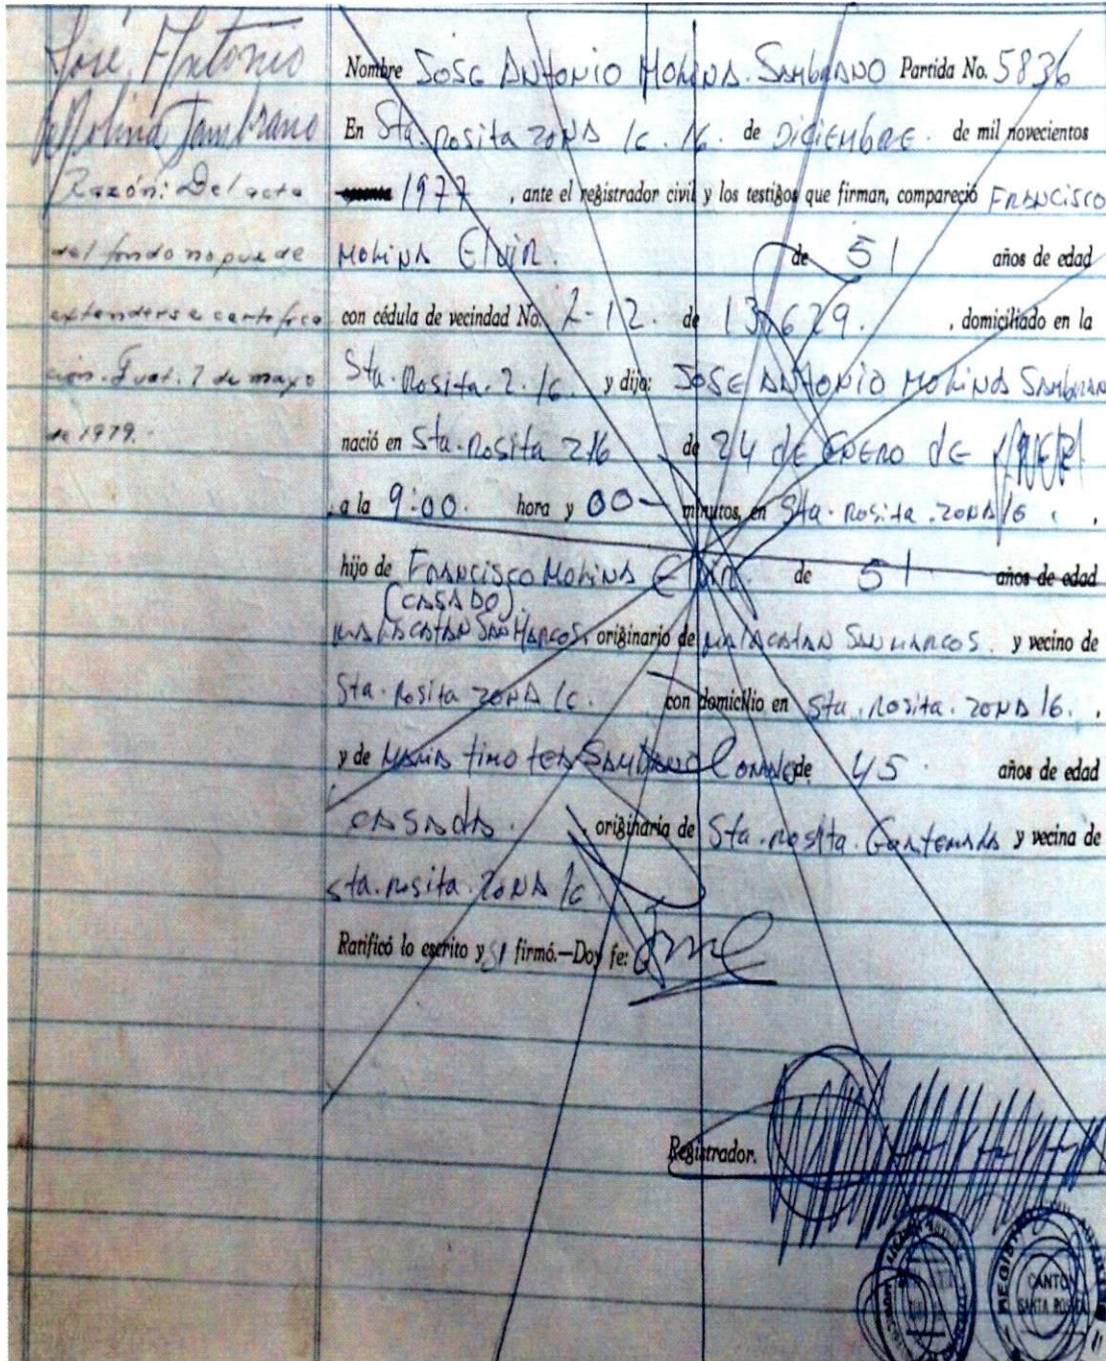 José Antonio
Molina Zambrano
Razón: Del acta
del fondo no puede
extenderse certifica
ción. Guat. 7 de mayo
de 1979.-
Nombre JOSE ANTONIO MOLINA. SAMBRANO Partida No. 5836
En Sta. Rosita ZONA 16. 16. de DICIEMBRE. de mil novecientos
1977, ante el registrador civil y los testigos que firman, compareció FRANCISCO
MOLINA ELVIR. de 51 años de edad
con cédula de vecindad No. 2-12. de 13,629. , domiciliado en la
Sta. Rosita. 2. 16. y dijo: JOSE ANTONIO MOLINA SAMBRAN
nació en Sta. Rosita 216 de 24 de ENERO de
, a la 9:00. hora y 00 minutos, en Sta. Rosita. ZONA 16 ,
hijo de FRANCISCO MOLINA ELVIR. de 51 años de edad
(CASADO).
MALACATAN SAN MARCOS. originario de MALACATAN SAN MARCOS. y vecino de
Sta. Rosita ZONA 16. con domicilio en Sta. Rosita. ZONA 16. ,
y de MARIA TIMOTEA SAMBRANO de 45. años de edad
CASADA. , originaria de Sta. Rosita. Guatemala y vecina de
Sta. Rosita. ZONA 16
Ratificó lo escrito y SI firmó.—Doy fe:
Registrador.
REGISTRO CIVIL
CANTON
SANTA ROSITA